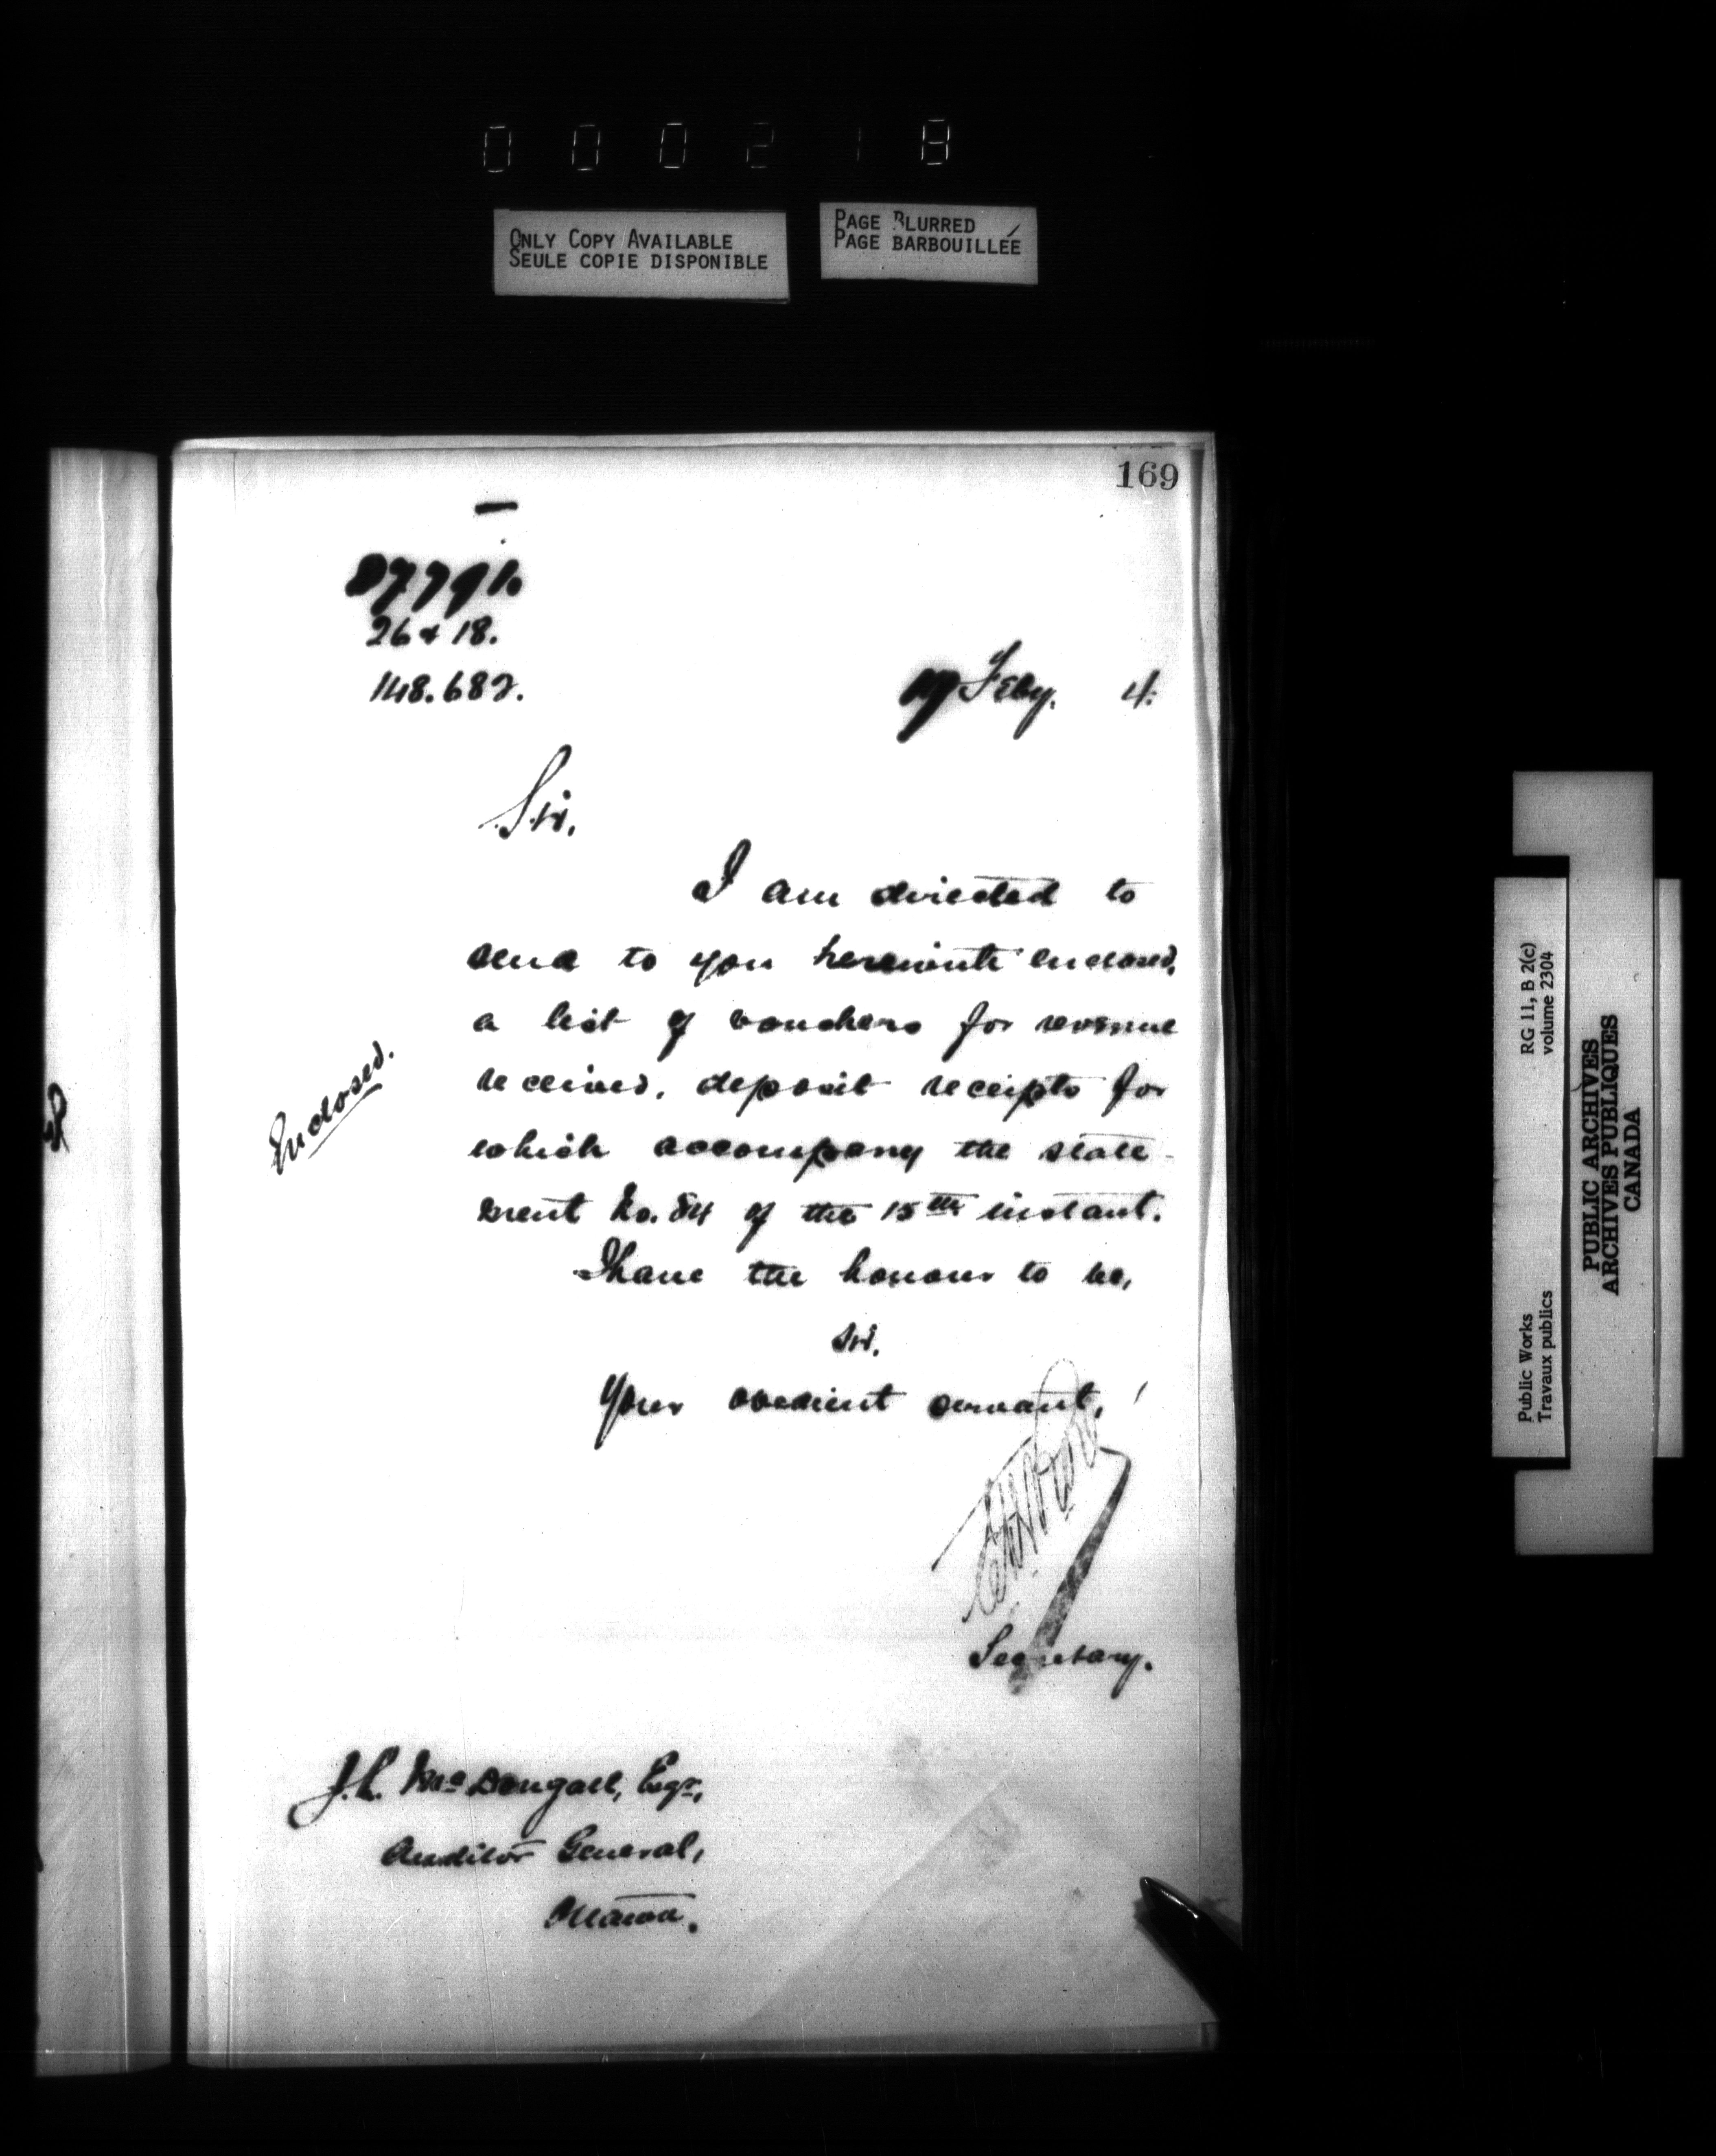 0 0 0 2 1 8
ONLY COPY AVAILABLE
SEULE COPIE DISPONIBLE
PAGE BLURRED
PAGE BARBOUILLÉE
169
7791.
26 & 18.
148.682.
Feby. 4.
Sir,
I am directed to
send to you herewith enclosed,
a list of vouchers for revenue
received, deposit receipts for
which accompany the state-
ment No. 54 of the 15th instant.
Enclosed.
I have the honour to be,
Sir,
Your obedient servant,
Secretary.
J. L. McDougall, Esqr.,
Auditor General,
Ottawa.
RG 11, B 2(c)
volume 2304
Public Works
Travaux publics
PUBLIC ARCHIVES
ARCHIVES PUBLIQUES
CANADA